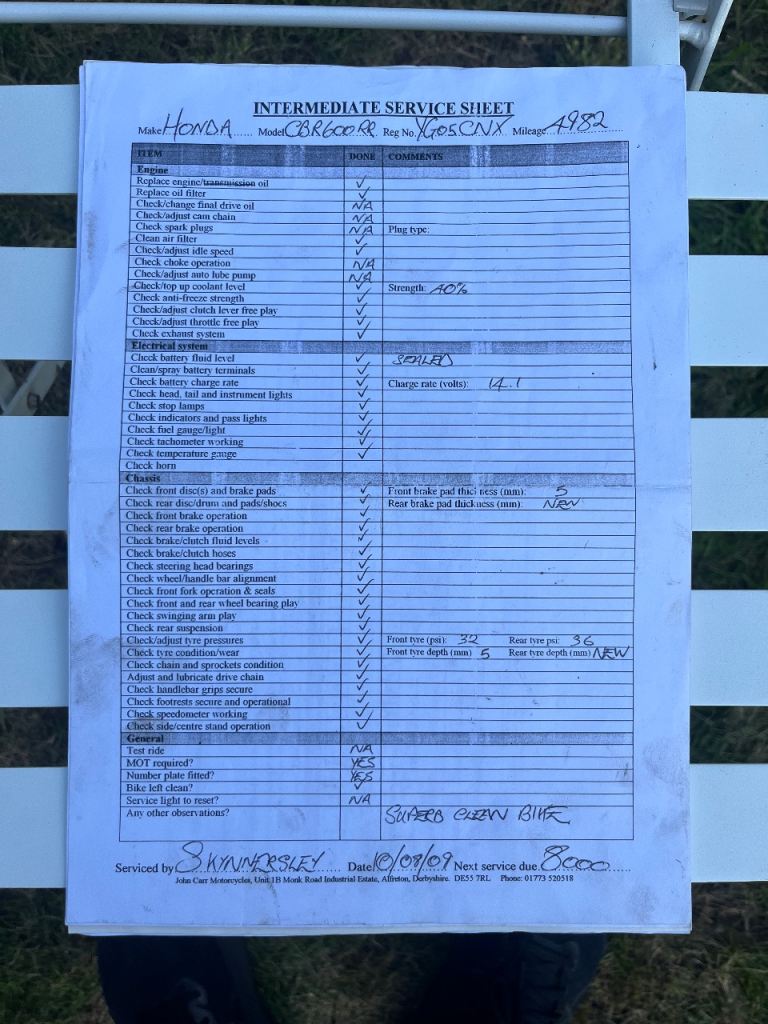 INTERMEDIATE SERVICE SHEET
Make HONDA Model CBR600RR Reg No. YG05CNX Mileage 4982
ITEM DONE COMMENTS
Engine
Replace engine/transmission oil ✓
Replace oil filter ✓
Check/change final drive oil NA
Check/adjust cam chain NA
Check spark plugs NA Plug type:
Clean air filter ✓
Check/adjust idle speed ✓
Check choke operation NA
Check/adjust auto lube pump NA
Check/top up coolant level ✓ Strength: 40%
Check anti-freeze strength ✓
Check/adjust clutch lever free play ✓
Check/adjust throttle free play ✓
Check exhaust system ✓
Electrical system
Check battery fluid level ✓ SEALED
Clean/spray battery terminals ✓
Check battery charge rate ✓ Charge rate (volts): 14.1
Check head, tail and instrument lights ✓
Check stop lamps ✓
Check indicators and pass lights ✓
Check fuel gauge/light ✓
Check tachometer working ✓
Check temperature gauge ✓
Check horn
Chassis
Check front disc(s) and brake pads ✓ Front brake pad thickness (mm): 5
Check rear disc/drum and pads/shoes ✓ Rear brake pad thickness (mm): NEW
Check front brake operation ✓
Check rear brake operation ✓
Check brake/clutch fluid levels ✓
Check brake/clutch hoses ✓
Check steering head bearings ✓
Check wheel/handle bar alignment ✓
Check front fork operation & seals ✓
Check front and rear wheel bearing play ✓
Check swinging arm play ✓
Check rear suspension ✓
Check/adjust tyre pressures ✓ Front tyre (psi): 32 Rear tyre psi: 36
Check tyre condition/wear ✓ Front tyre depth (mm) 5 Rear tyre depth (mm) NEW
Check chain and sprockets condition ✓
Adjust and lubricate drive chain ✓
Check handlebar grips secure ✓
Check footrests secure and operational ✓
Check speedometer working ✓
Check side/centre stand operation ✓
General
Test ride NA
MOT required? YES
Number plate fitted? YES
Bike left clean? ✓
Service light to reset? NA
Any other observations? SUPERB CLEAN BIKE
Serviced by S KYNNERSLEY Date 10/08/09 Next service due 8000
John Carr Motorcycles, Unit 1B Monk Road Industrial Estate, Alfreton, Derbyshire. DE55 7RL Phone: 01773 520518